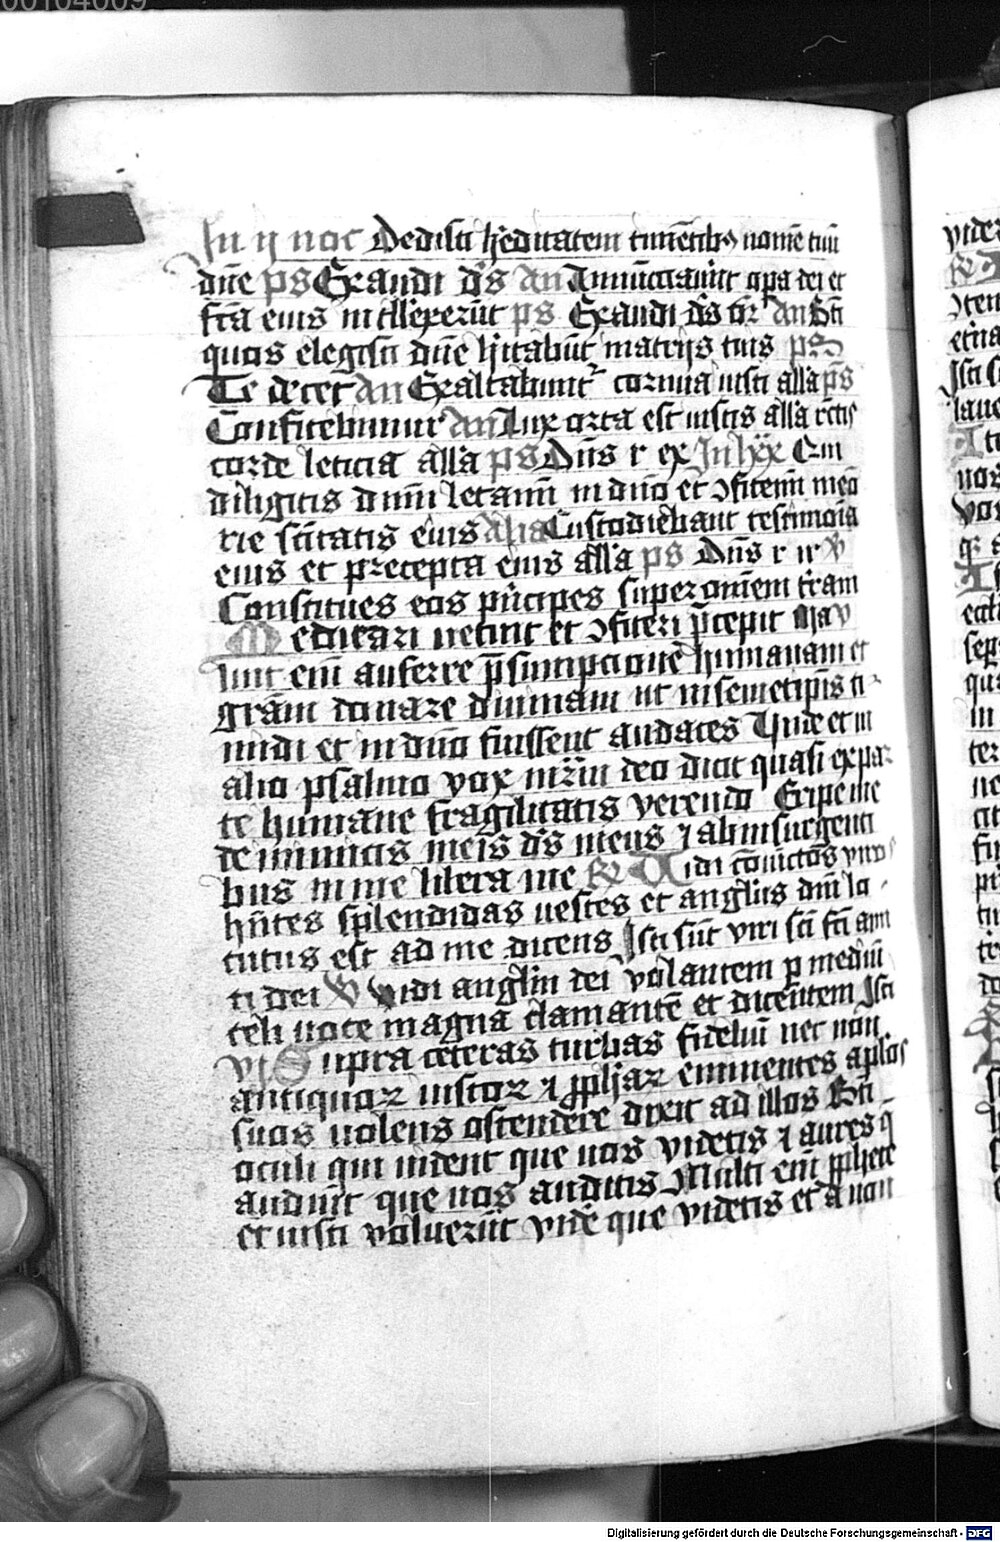 00104009
In ij noc Dedisti h̄editatem timētibꝫ nomē tuū
dn̄e ps Exaudi ds̄ an Annūctiauer̄t opa dei et
fc̄a eius intellexerūt ps Exaudi ds̄ an Bt̄i
quos elegisti dn̄e hītabūt in atrijs tuis ps
Te decet an Exaltabunt cornua iusti all̄a ps
Confitebimur an Lux orta est iustis all̄a rc̄tis
corde leticia all̄a ps Dn̄s r ex In lxx Qui
diligitis dn̄m letamī in dn̄o et ꝯfitemī meō
rie sc̄itatis eius Alia Custodiebant testimōia
eius et precepta eius all̄a ps Dn̄s r ir v
Constitues eos pͥncipes super omēm tr̄am
Meditari uetint et ꝯfiteri p̄cepit
lunt em̄ auferre p̄sumpcionē humanam et
grām donare diuinam ut in semetip̄is ti
midi et in dn̄o fuissent audaces Unde et in
alio psalmo vox mr̄m deo dicit quasi ex par
te humane fragilitatis verendo Eripe me
de inimicis meis ds̄ meus ⁊ ab insurgenti
bus in me libera me R Vidi cōiunctos viros
hn̄tes splendidas uestes et anglus dn̄i lo
cutus est ad me dicens Isti sūt viri sc̄i fc̄i ami
ci dei V Vidi anglm̄ dei volantem p mediū
celi uoce magna clamantē et dicentem Isti
vj Supra ceteras turbas fideliū nec non
antiquoꝝ iustoꝝ ⁊ pph̄aꝝ eminentes apl̄os
suos uolens ostendere dixit ad illos Bt̄i
oculi qui uident que uos videtis ⁊ aures q̄
audiūt que uos auditis Multi em̄ pph̄ete
et iusti voluerūt vidē que videtis et a non
Digitalisierung gefördert durch die Deutsche Forschungsgemeinschaft - DFG